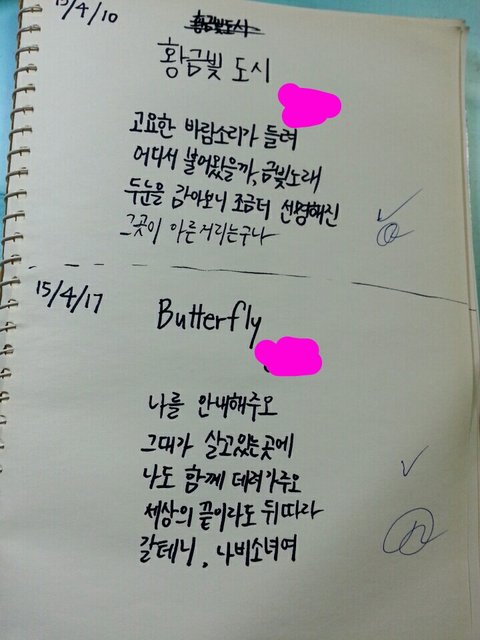 15/4/10
황금빛도시
황금빛 도시
고요한 바람소리가 들려
어디서 불어왔을까, 금빛노래
두눈을 감아보니 조금더 선명해진
그곳이 아른거리는구나
15/4/17
Butterfly
나를 안내해주오
그대가 살고있는곳에
나도 함께 데려가주오
세상의 끝이라도 뒤따라
갈테니, 나비소녀여